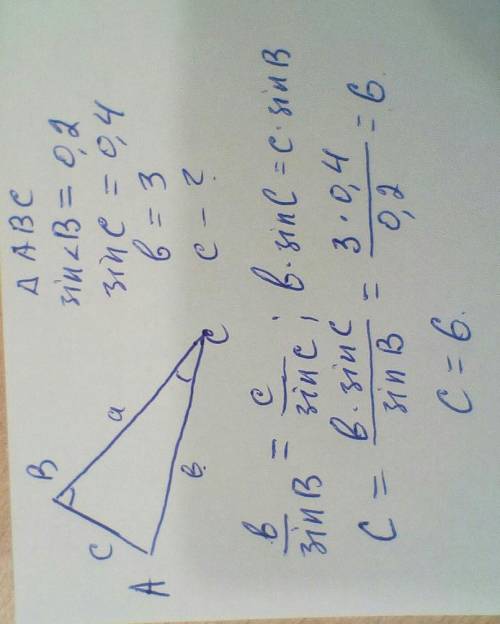 Δ ABC
sin∠B = 0,2
sin C = 0,4
в = 3
c - ?
B
a
C
в
A
c
в/sinB = c/sinC ; в·sinC = c·sinB
C = в·sinC/sinB = 3·0,4/0,2 = 6.
C = 6.